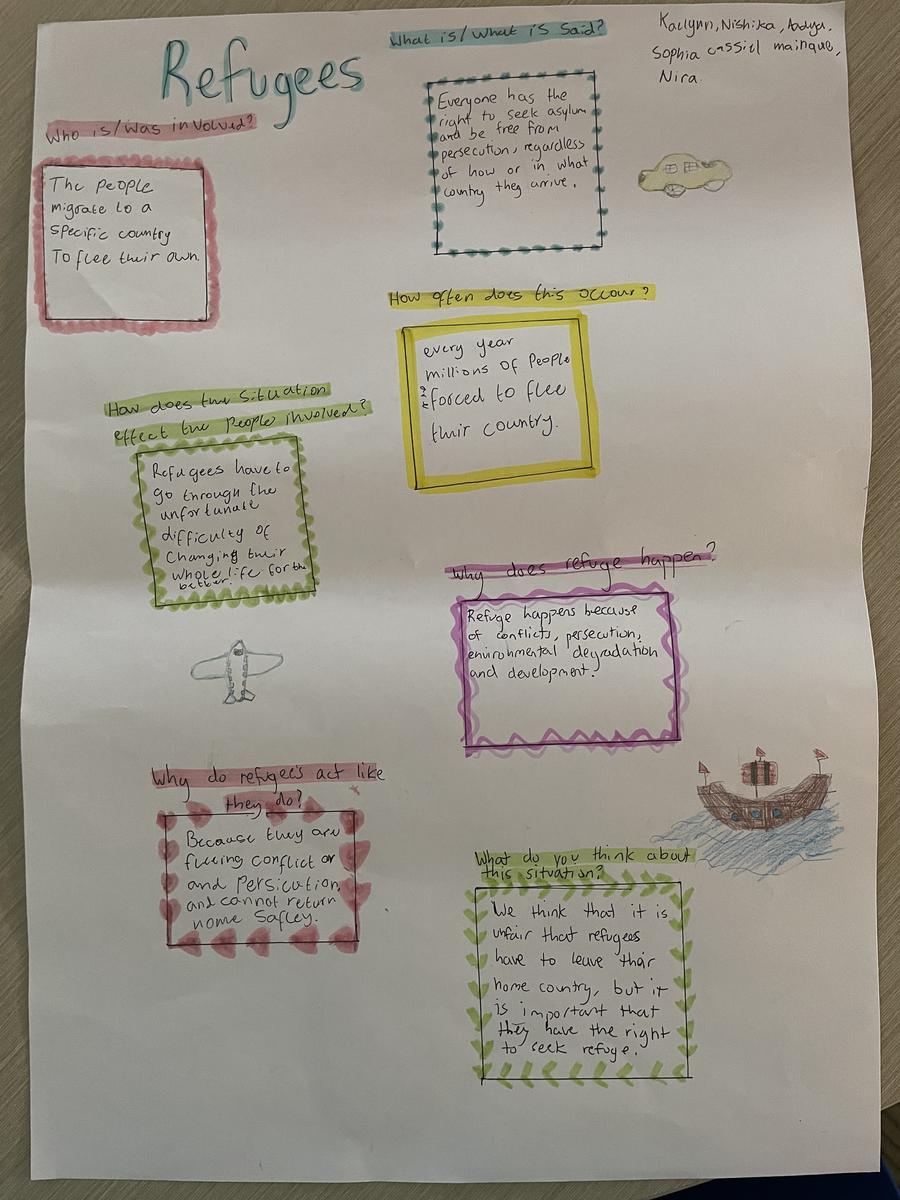 Refugees
Kaelynn, Nishika, Aadya,
Sophia cassiel mainque,
Nira.
Who is/was involved?
The people
migrate to a
specific country
To flee their own.
What is/What is said?
Everyone has the
right to seek asylum
and be free from
persecution, regardless
of how or in what
country they arrive.
How often does this occour?
every year
millions of people
forced to flee
their country.
How does the situation
effect the people involved?
Refugees have to
go through the
unfortunate
difficulty of
changing their
whole life for the
better.
Why does refuge happen?
Refuge happens because
of conflicts, persecution,
environmental degradation
and development.
Why do refugees act like
they do?
Because they are
fleeing conflict or
and Persicution,
and cannot return
home Safley.
What do you think about
this situation?
We think that it is
unfair that refugees
have to leave their
home country, but it
is important that
they have the right
to seek refuge.